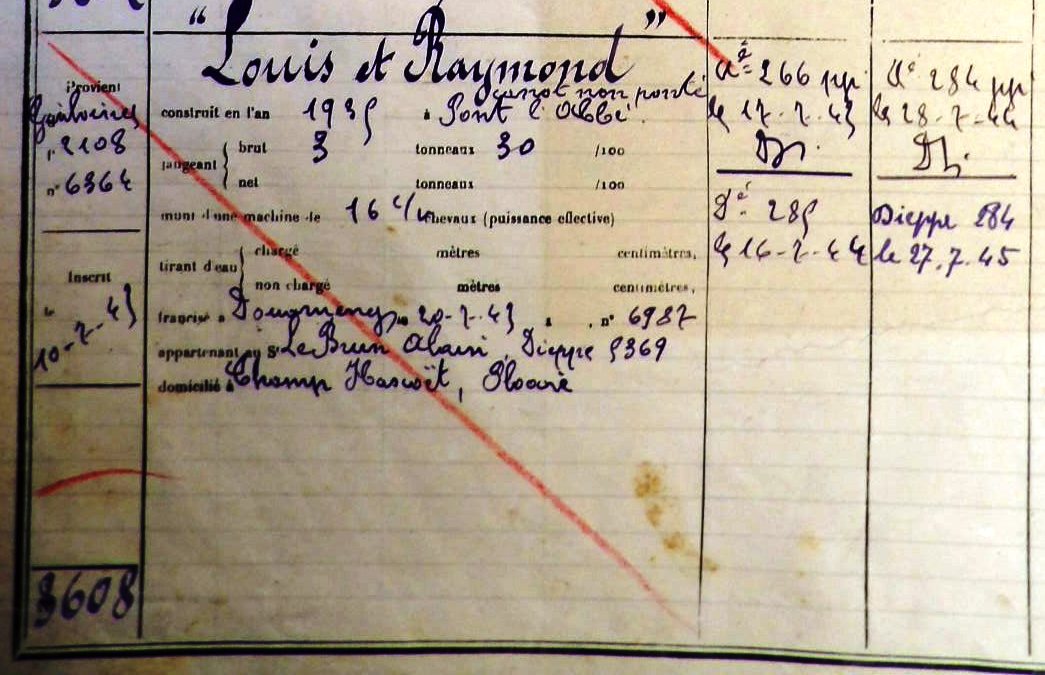 “ Louis et Raymond ”
canot non ponté
Provient
f° 2108
n° 6364
construit en l'an 1935 à Pont l'Abbé.
jaugeant { brut 3 tonneaux 30 /100
net tonneaux /100
muni d'une machine de 16 c/v chevaux (puissance effective)
tirant d'eau { chargé mètres centimètres,
non chargé mètres centimètres,
francisé à Douarnenez, le 20-7-43 à , n° 6987
appartenant au Sr Le Brun Alain, Dieppe 5369
domicilié à Champ Hascoët, Ploaré
Inscrit
le
10-7-43
3608
Dé 266 pp
le 17-7-43
Dé 285
le 16-7-44
Dé 284 pp
le 28-7-44
Dieppe 284
le 27.7.45